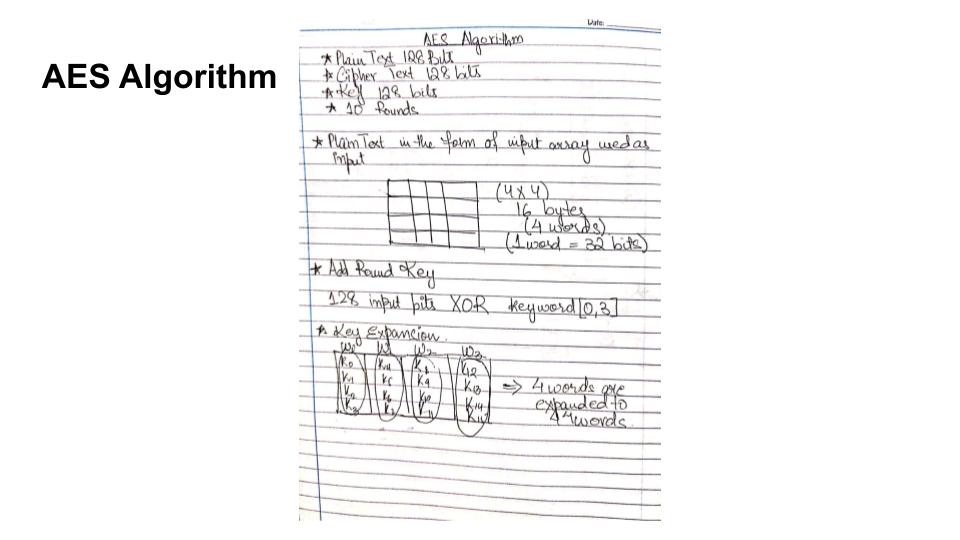 AES Algorithm
Date:
AES Algorithm
* Plain Text 128 Bits
* Cipher Text 128 bits
* Key 128 bits
* 10 rounds
* Plain Text in the form of input array used as
Input
(4x4)
16 bytes
(4 words)
(1 word = 32 bits)
* Add Round Key
128 input bits XOR keyword [0,3]
* Key Expancion
W0 W1 W2 W3
K0 K4 K8 K12
K1 K5 K9 K13
K2 K6 K10 K14
K3 K7 K11 K15
⇒ 4 words are
expanded to
44 words.